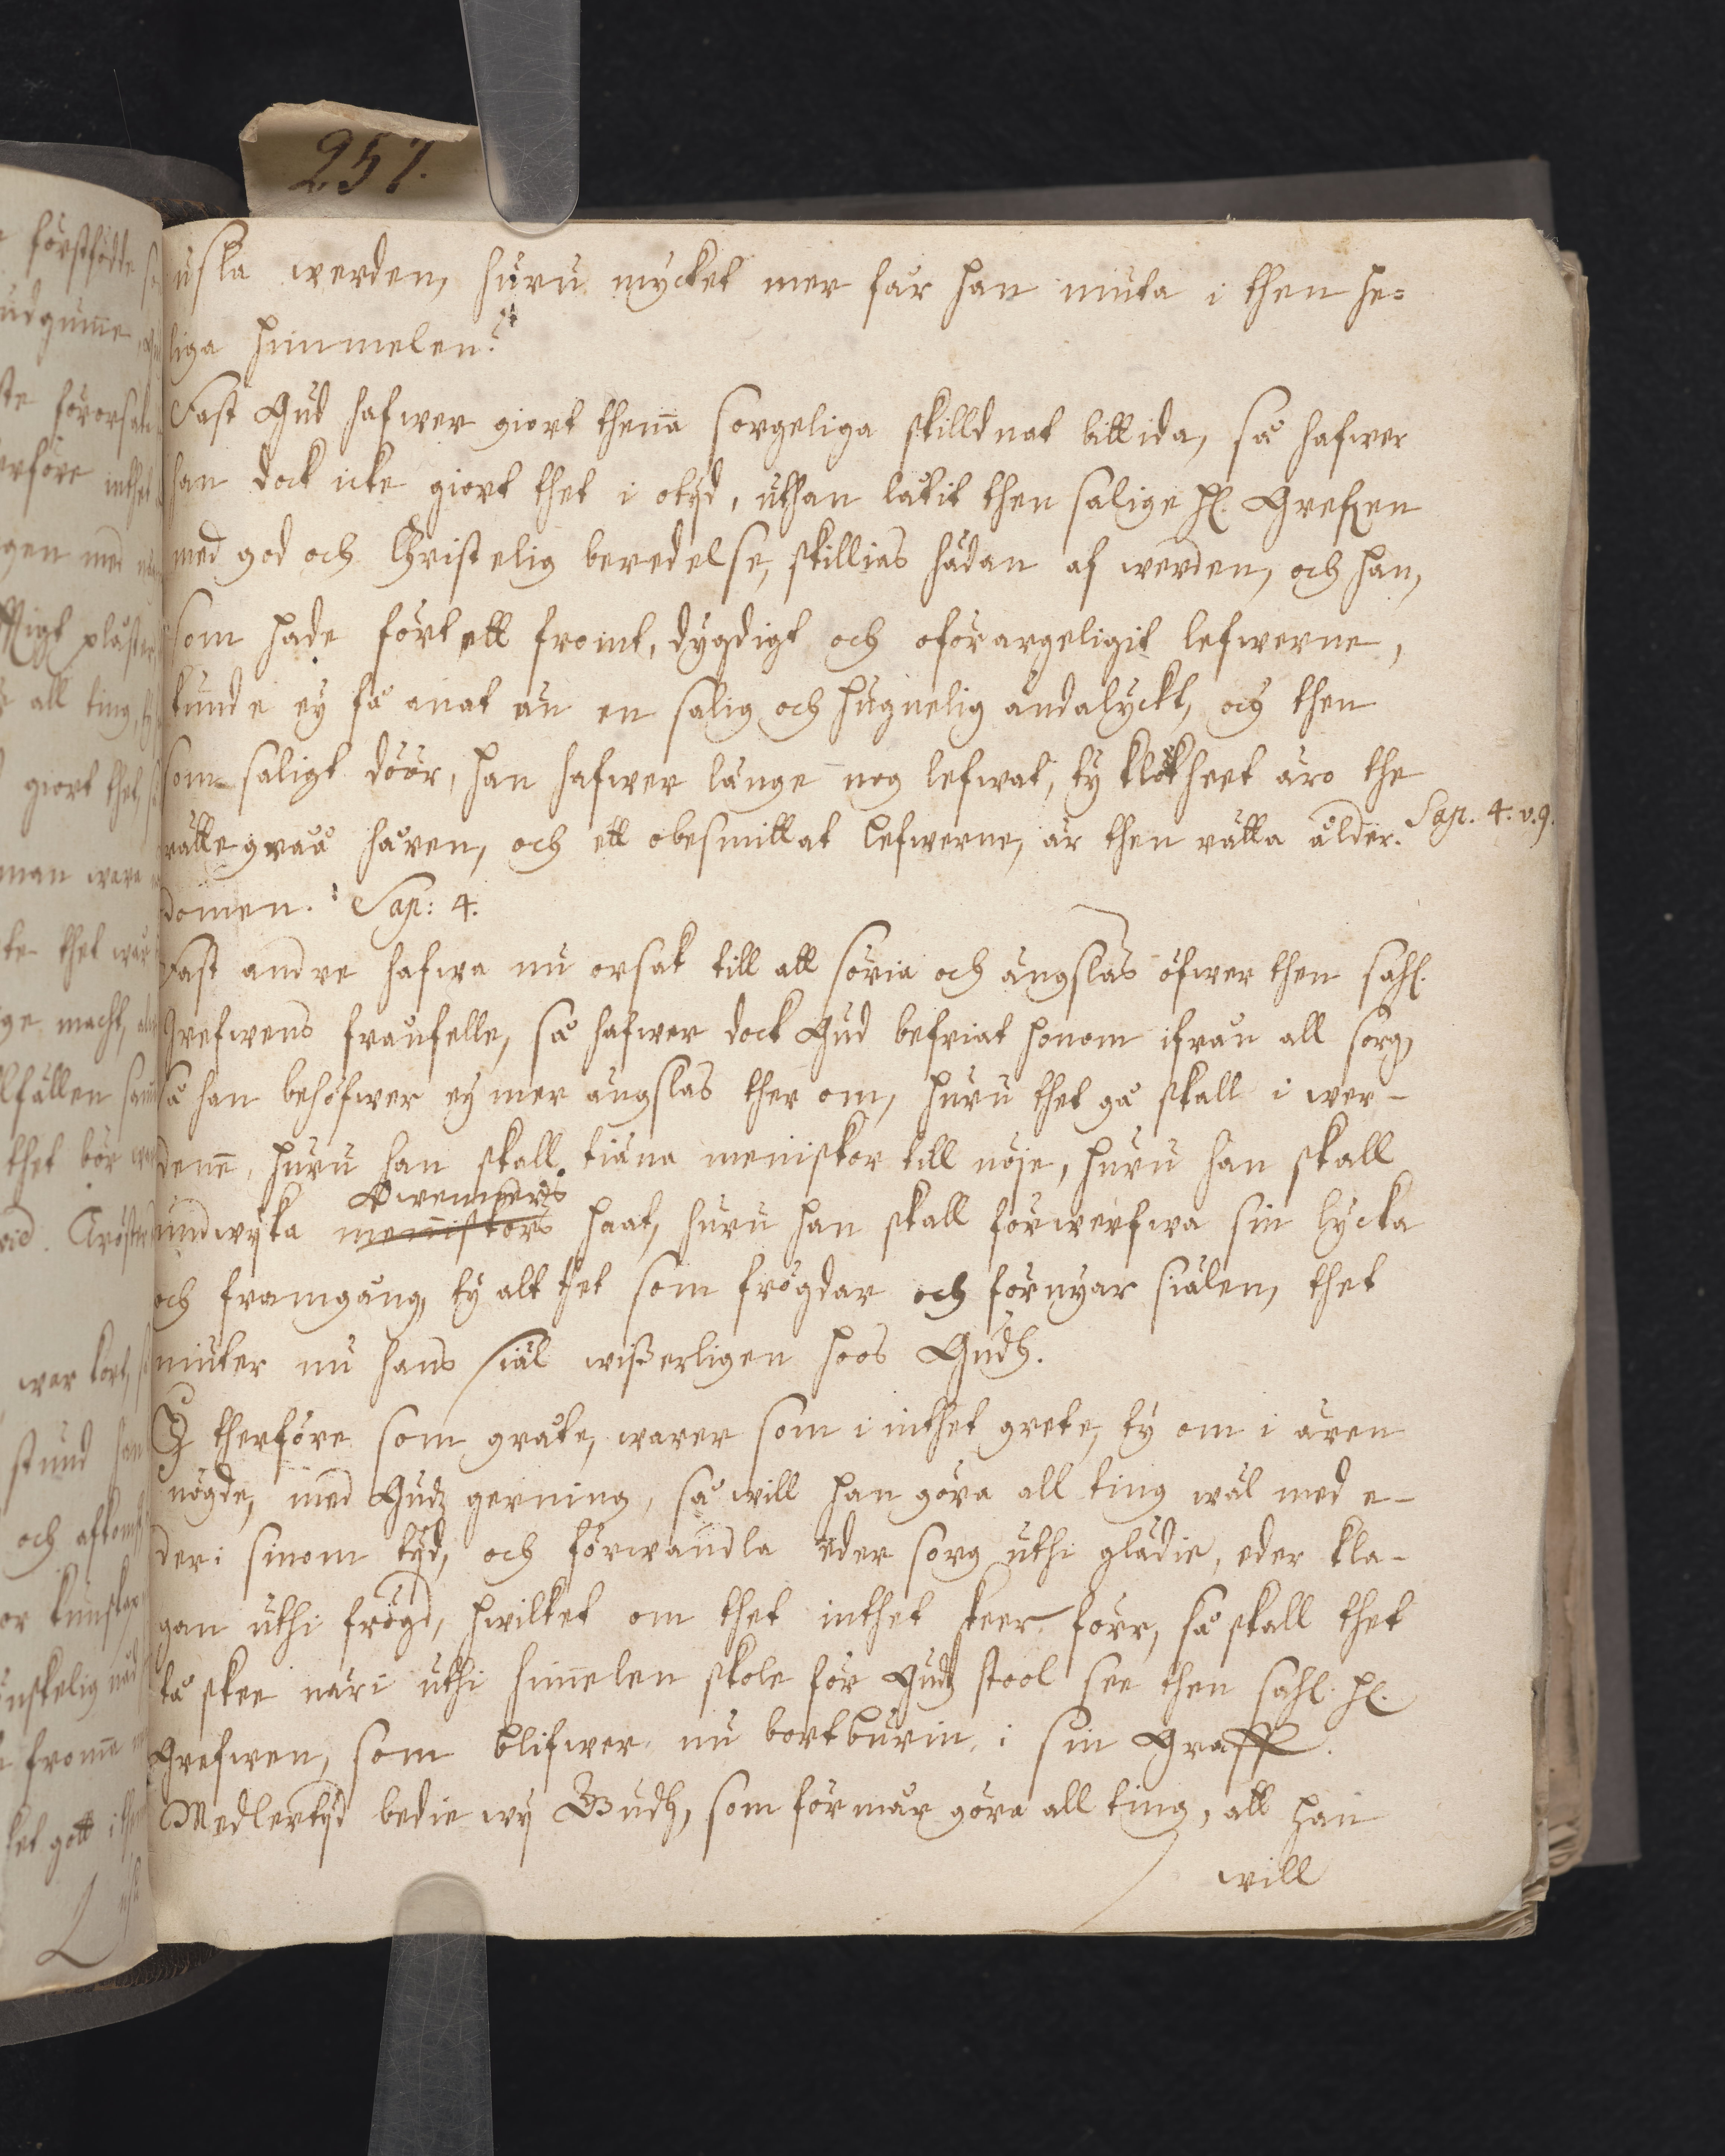 257.
usla werden, huru mycket mer får han niuta i then he=
liga himmelen?
Fast Gud hafwer giort thenna sorgeliga skilldnat bittida, så hafwer
han dock icke giort thet i otijd, uthan låtit then salige H. Grefwen
med god och Christelig beredelse, skillias hädan af werden, och han,
som hade fört ett fromt, dygdigt och oförargeligit lefwerne,
kunde ey få anat än en salig och hugnelig ändalyckt, och then
som saligt döör, han hafwer länge nog lefwat, ty klokheet äro the
rätte gråå håren, och ett obesmittat lefwerne, är then rätta ålder-
Sap. 4. v. 9.
domen. Sap: 4.
Fast andre hafwa nu orsak till att söria och ängslas öfwer then sahl.
Grefwens frånfelle, så hafwer dock Gud befriat honom ifrån all sorg,
så han behöfwer ey mer ängslas ther om, huru thet gå skall i wer-
denne, huru han skall tiäna meniskor till nöje, huru han skall
Owenners
undwyka menniskors haat, huru han skall förwerfwa sin lycka
och framgång, ty alt thet som frögdar och förnyar siälen, thet
niuter nu hans siäl wisserligen hoos Gudh.
I therföre som gråte, warer som i inthet grete, ty om i ären
nögde, med Gudz gerning, så will han göra all ting wäl med e-
der i sinom tijd, och förwandla eder sorg uthi glädie, eder kla-
gan uthi frögd, hwilket om thet inthet skeer förr, så skall thet
tå skee när i uthi himelen skole för Gudz stool see then sahl. H.
Grefwen, som blifwer nu bortburin i sin Graff.
Medlertijd bedie wy Gudh, som förmår göra all ting, att han
will